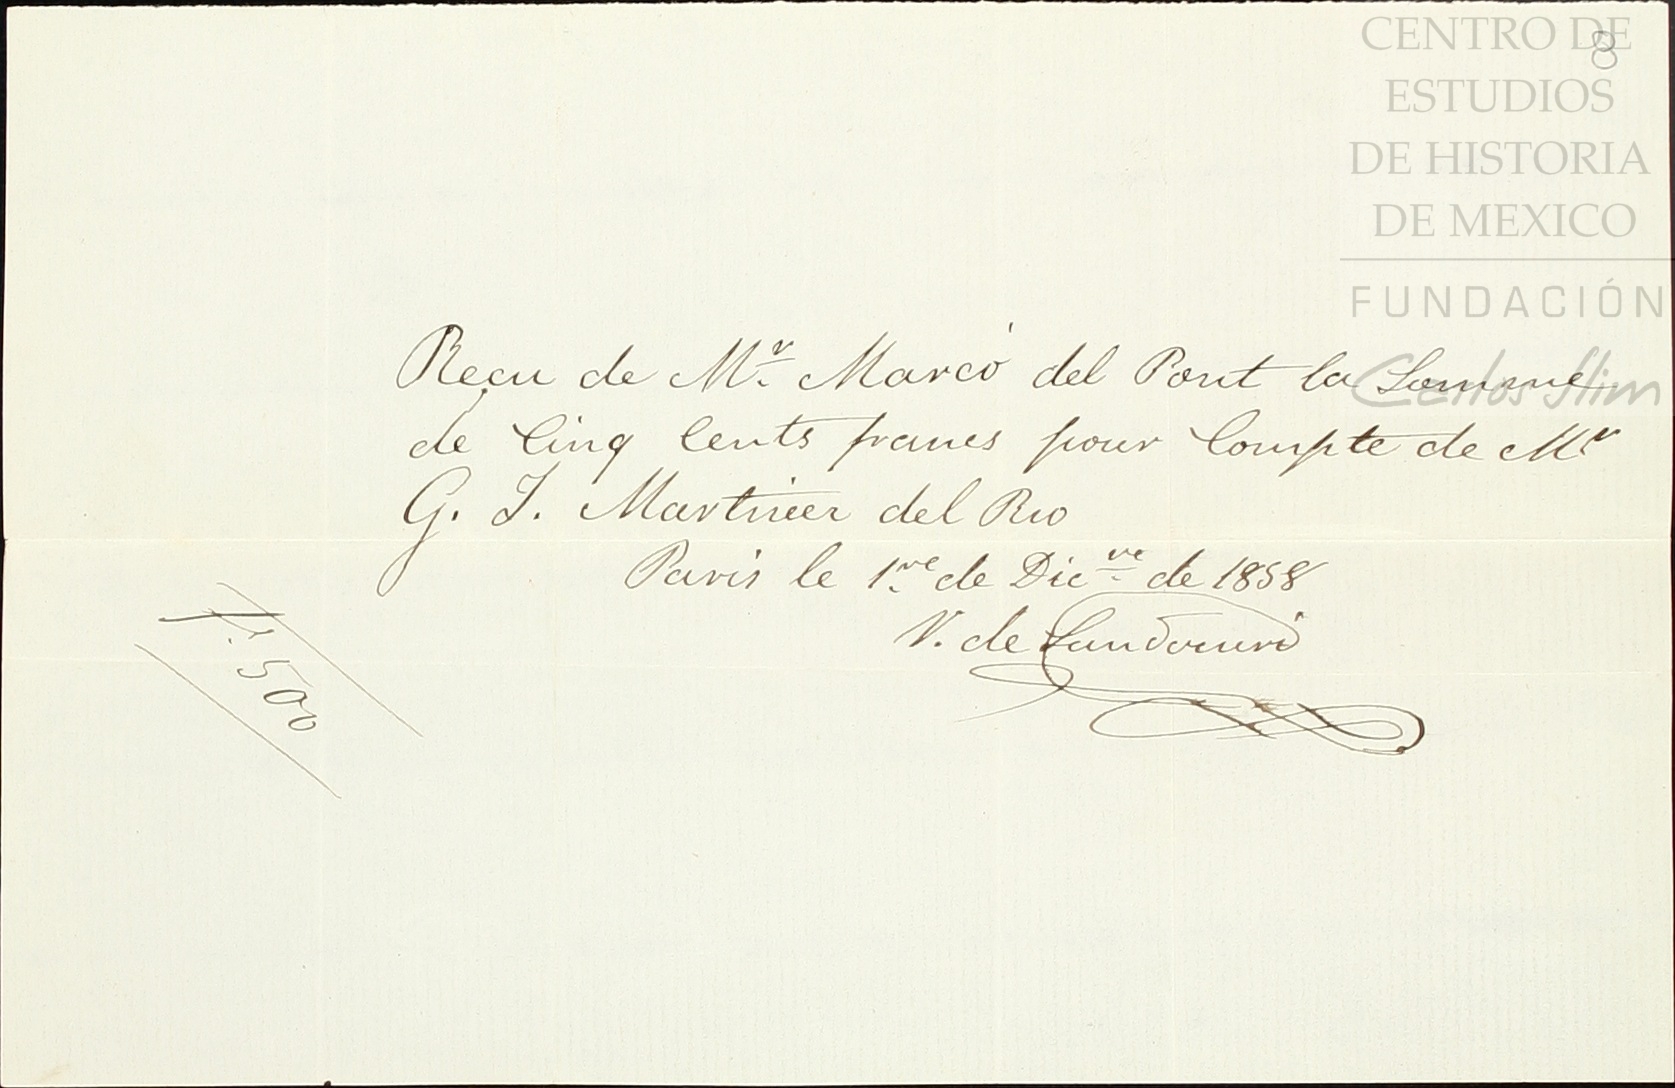 8
CENTRO DE
ESTUDIOS
DE HISTORIA
DE MEXICO
FUNDACIÓN
Carlos Slim
Reçu de Mr. Marcó del Pont la Somme
de Cinq Cents francs pour Compte de Mr
G. J. Martinez del Rio
Paris le 1re de Dicre de 1858
V. de
fr. 500